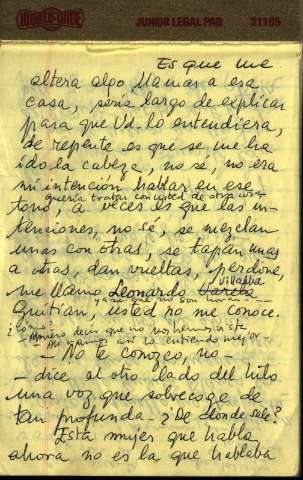 WORLD-WIDE
JUNIOR LEGAL PAD
31185
Es que me
altera algo llamar a esa
casa, sería largo de explicar
para que Vd. lo entendiera,
de repente es que se me ha
ido la cabeza, no sé, no era
mi intención hablar en ese
quería tratar con usted de otra
tono, a veces es que las in-
tenciones, no sé, se mezclan
unas con otras, se tapan unas
a otras, dan vueltas, perdone,
Villalba
me llamo Leonardo
ya sé que no son horas
Guitian, usted no me conoce.
¿Cómo?
quiero decir que no nos hemos visto
Ah, vamos, así lo entiendo mejor
- No te conozco, no -
- dice al otro lado del hilo
una voz que sobrecoge de
tan profunda - ¿De dónde sale?
Esta mujer que habla
ahora no es la que hablaba